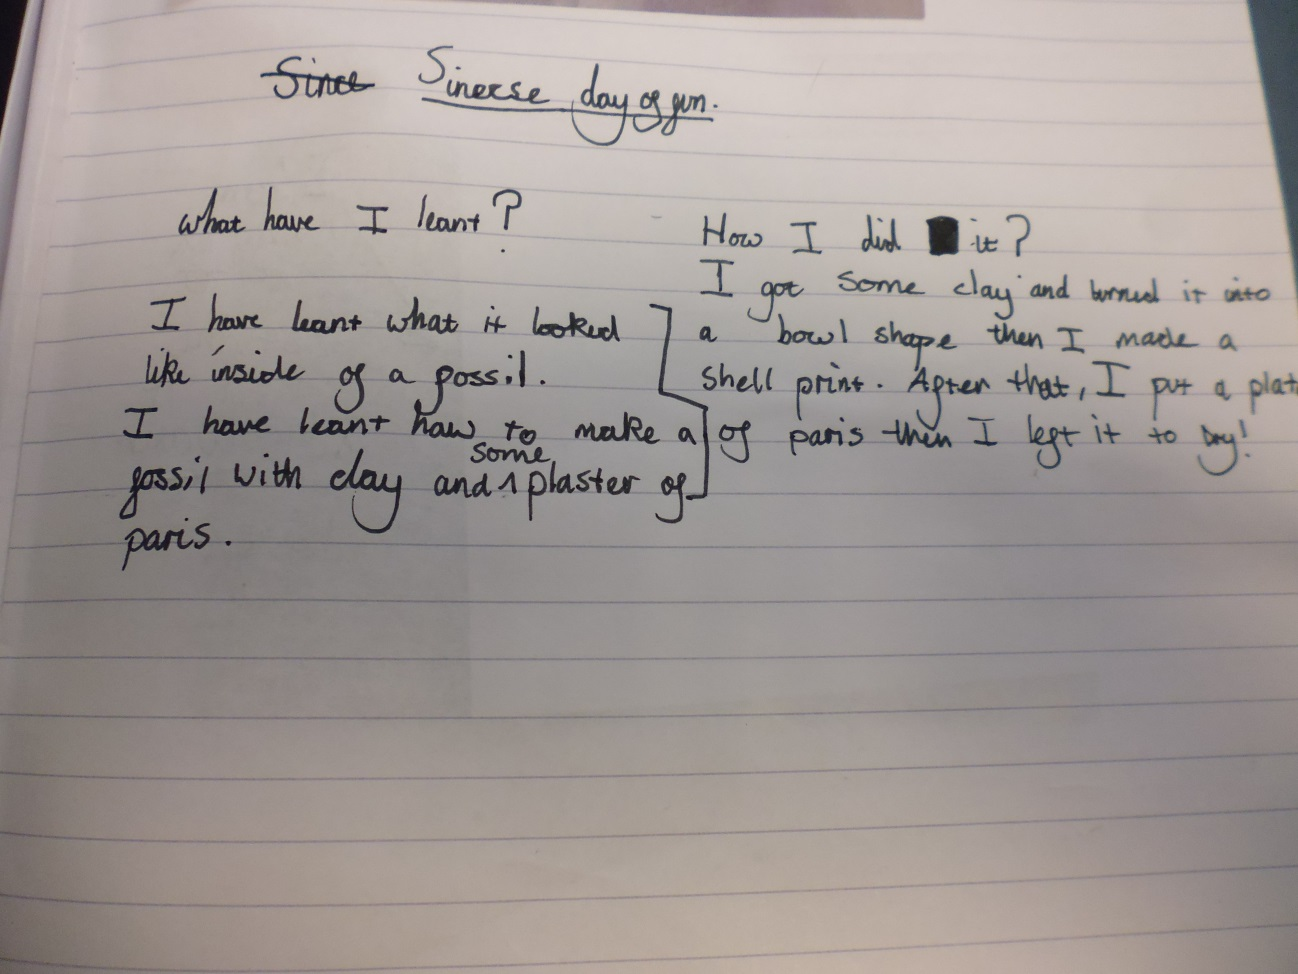 Since Sinerse day of fun.
what have I leant?
I have leant what it looked
like inside of a fossil.
I have leant haw to make a
fossil with clay and some plaster of
paris.
How I did it?
I got some clay and turned it into
a bowl shape then I made a
shell print. After that, I put a plat
of paris then I left it to Dry!